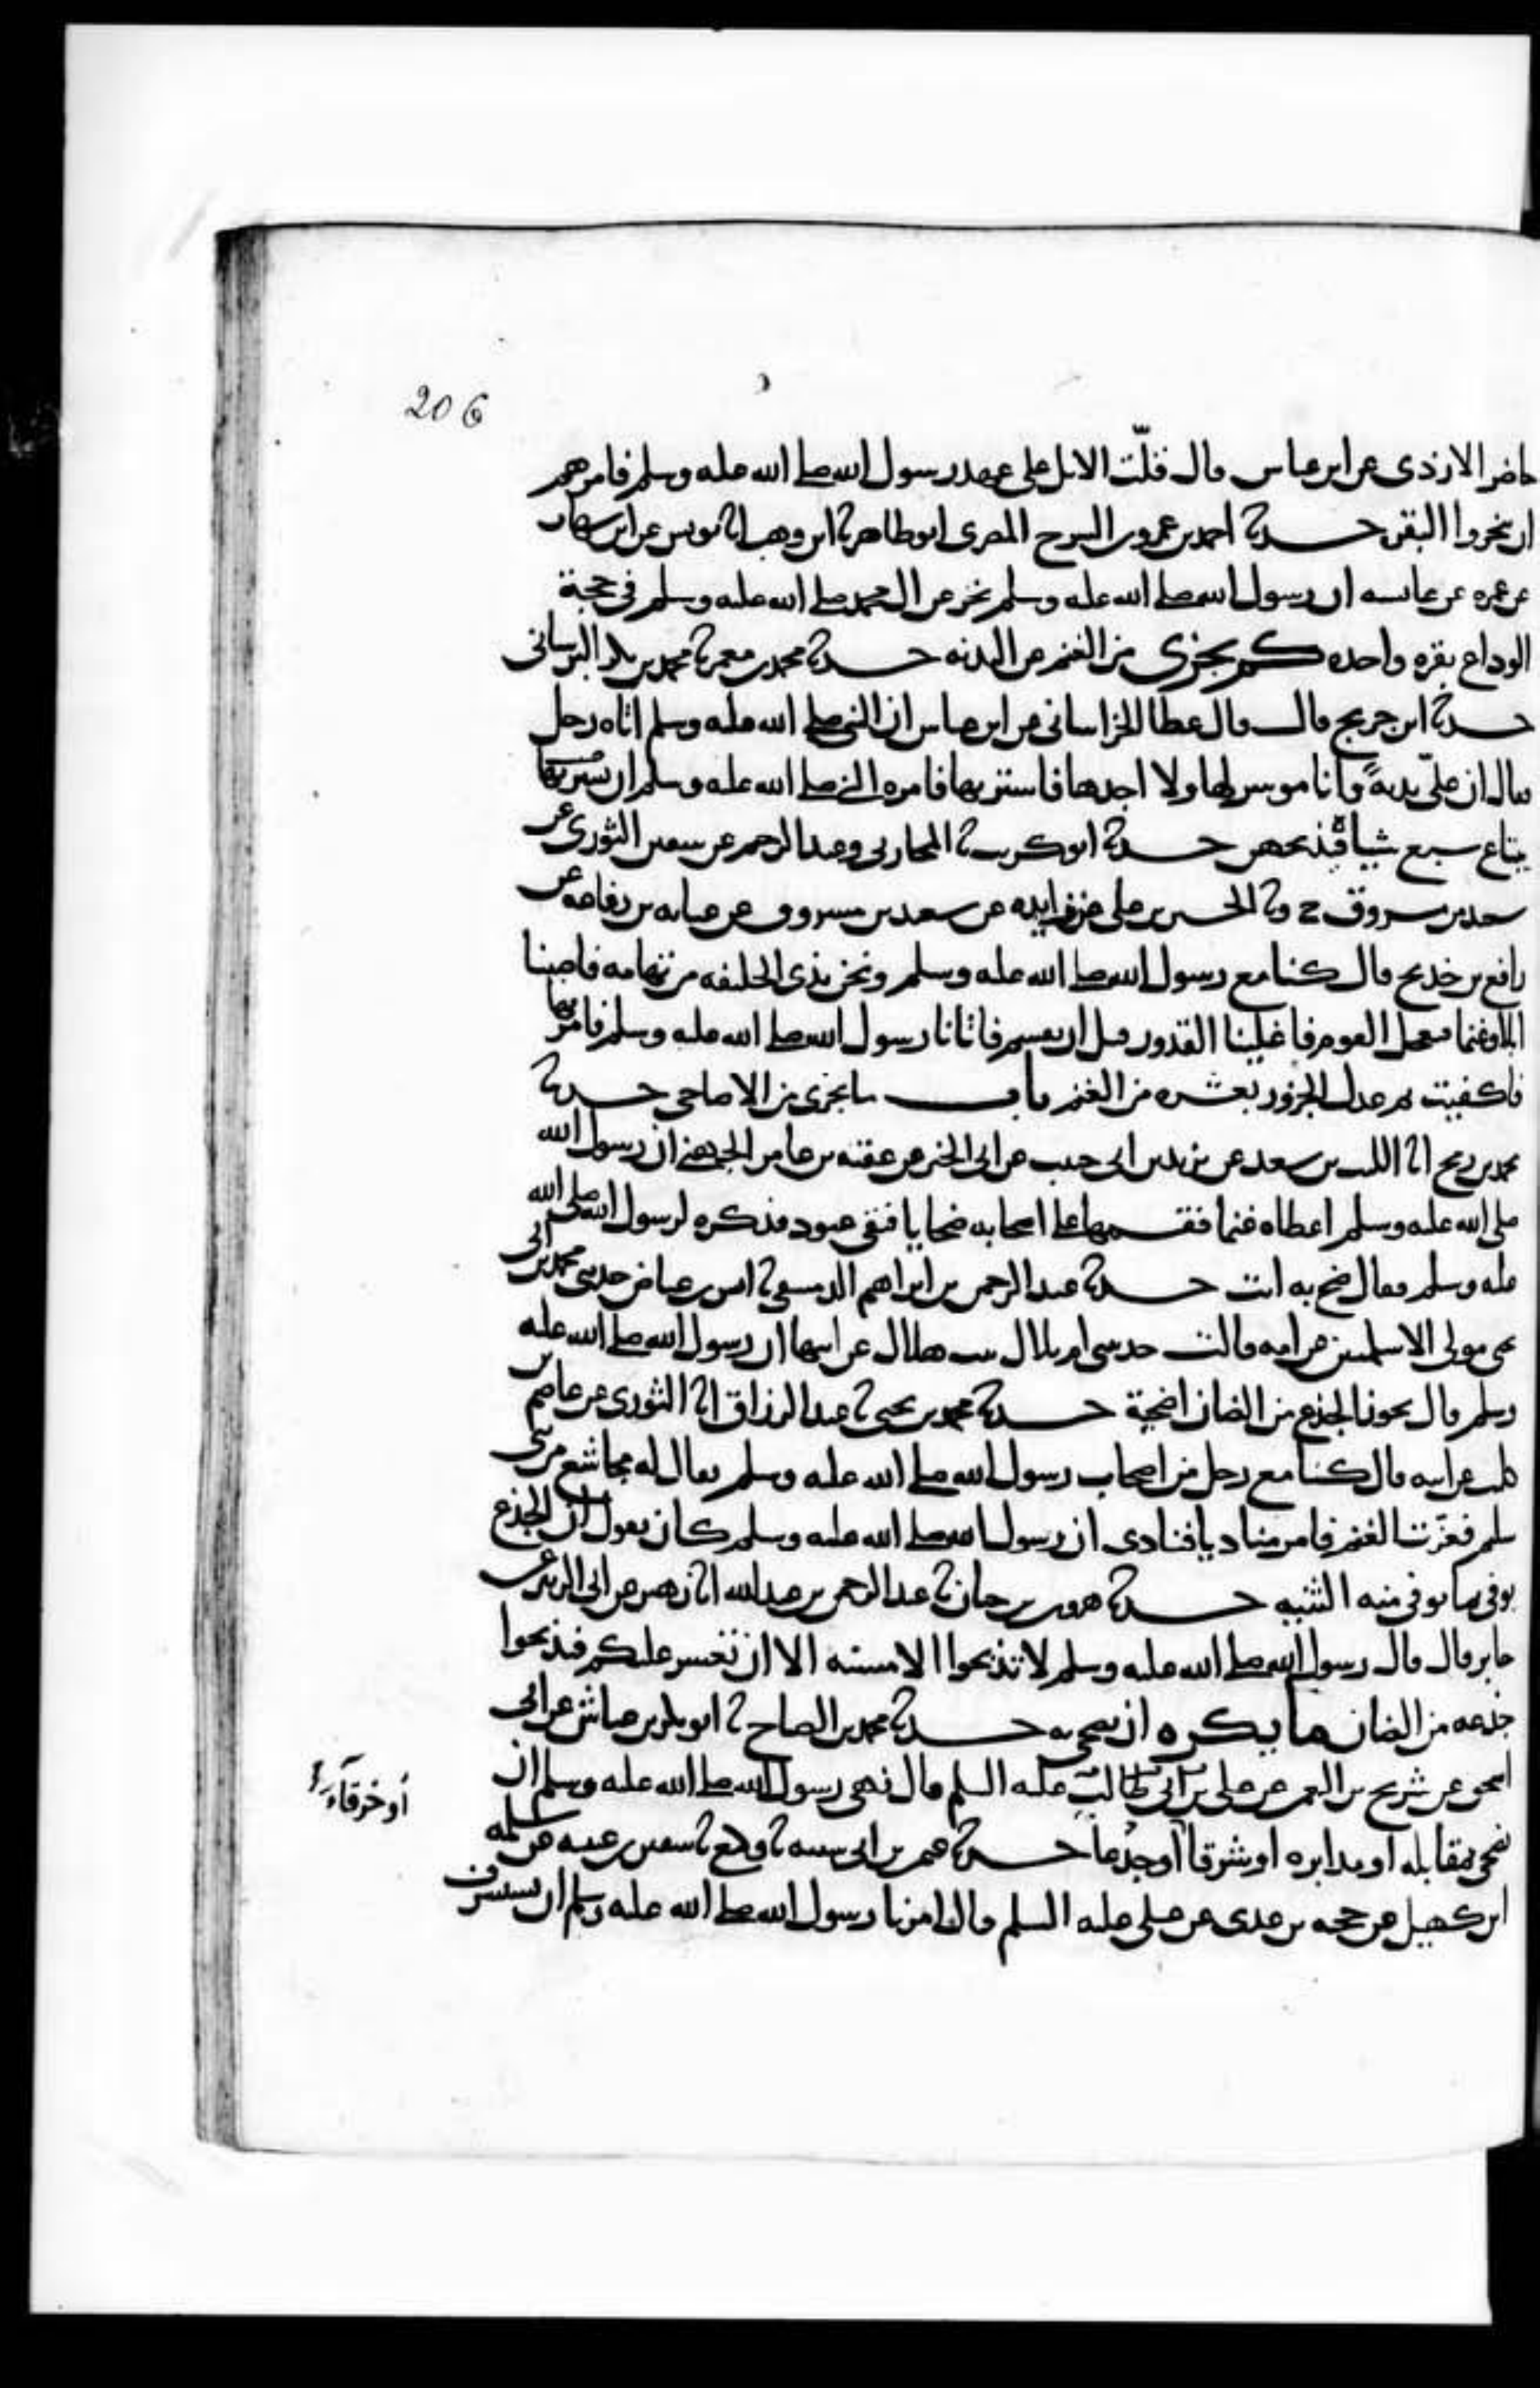 206
حاضر الازدى عن ابن عباس قال قلّت الابل على عهد رسول الله صلى الله عليه وسلم فامرهم
ان ينحروا البقر حدثنا احمد بن عمرو بن السرح المصرى ابو طاهر ثنا ابن وهب انا يونس عن ابن شهاب
عن عمره عن عائشه ان رسول الله صلى الله عليه وسلم نحر عن ال محمد صلى الله عليه وسلم فى حجة
الوداع بقره واحده كم يجزى من الغنم عن البدنه حدثنا محمد بن معمر ثنا محمد بن بكر البرسانى
حدثنا ابن جريج قال قال عطا الخراسانى عن ابن عباس ان النبى صلى الله عليه وسلم اتاه رجل
فقال ان علىّ بدنةً وانا موسر لها ولا اجدها فاشتريها فامره النبى صلى الله عليه وسلم ان
يبتاع سبع شياة فيذبحهن حدثنا ابو كريب ثنا المحاربى وعبد الرحيم عن سفين الثورى عن
سعيد بن مسروق ح وثنا الحسين بن على عن زايده عن سعيد بن مسروق عن عبايه بن رفاعه عن
رافع بن خديج قال كنا مع رسول الله صلى الله عليه وسلم ونحن بذى الحليفه من تهامه فاصبنا
ابلا وغنما فعجل القوم فاغلينا القدور قبل ان يقسم فاتانا رسول الله صلى الله عليه وسلم فامر بها
فاكفيت ثم عدل الجزور بعشره من الغنم باب ما يجزى من الاضاحى حدثنا
محمد بن رمح انا الليث بن سعد عن يزيد بن ابى حبيب عن ابى الخير عن عقبه بن عامر الجهنى ان رسول الله
صلى الله عليه وسلم اعطاه غنما فقسمها على اصحابه ضحايا فبقى عتود فذكره لرسول الله صلى الله
عليه وسلم فقال ضح به انت حدثنا عبد الرحمن بن ابراهيم الدمشقى ثنا انس بن عياض حدثنى محمد بن ابى
يحيى مولى الاسلميين عن امه قالت حدثتنى ام بلال بنت هلال عن ابيها ان رسول الله صلى الله عليه
وسلم قال يجوز الجذع من الضان اضحية حدثنا محمد بن يحيى ثنا عبد الرزاق انا الثورى عن عاصم بن
كليب عن ابيه قال كنا مع رجل من اصحاب رسول الله صلى الله عليه وسلم يقال له مجاشع من بنى
سليم فعزّت الغنم فامر مناديا فنادى ان رسول الله صلى الله عليه وسلم كان يقول ان الجذع
يوفى مما توفى منه الثنيه حدثنا هرون بن حيان ثنا عبد الرحمن بن عبد الله انا زهير عن ابى الزبير عن
جابر قال قال رسول الله صلى الله عليه وسلم لا تذبحوا الا مسنه الا ان تعسر عليكم فتذبحوا
جذعه من الضان ما يكره ان يضحى به حدثنا محمد بن الصباح ثنا ابو بكر بن عياش عن ابى
اسحق عن شريح بن النعمن عن على بن ابى طالب عليه السلم قال نهى رسول الله صلى الله عليه وسلم ان
يضحى بمقابله او مدابره او شرقا أو جدعا حدثنا ابى شيبه ثنا وكيع ثنا سفين بن عن سلمه
أو خرقآء
ابن كهيل عن حجيه بن عدى عن على عليه السلم قال امرنا رسول الله صلى الله عليه وسلم ان نستشرف